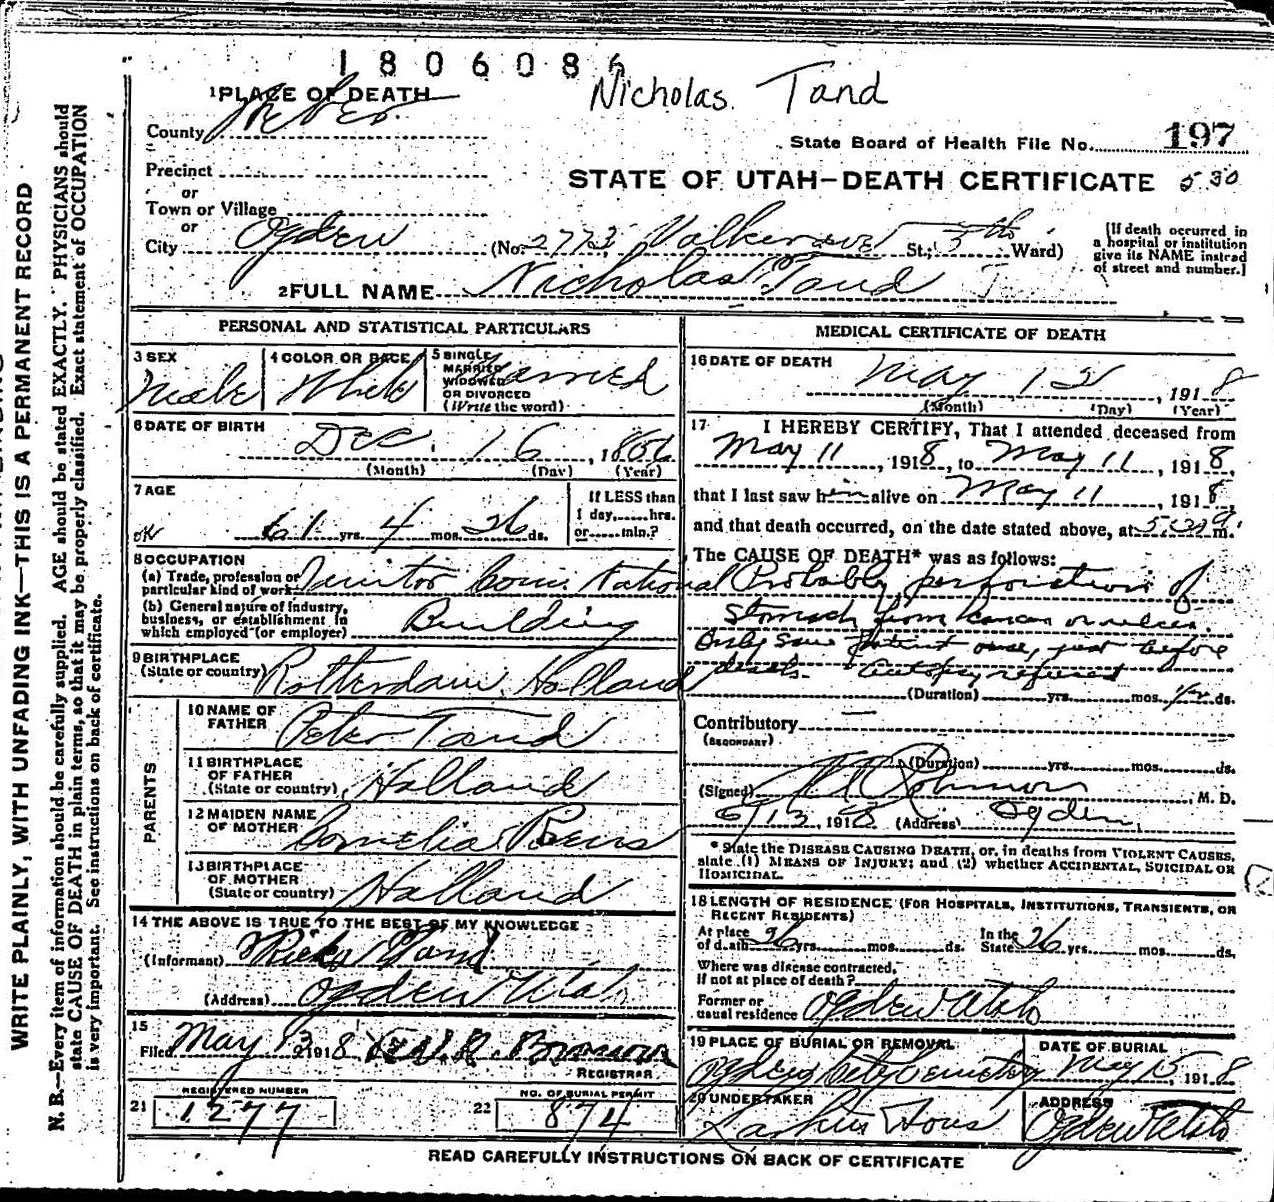 1806086
Nicholas Tand
1 PLACE OF DEATH
County Weber
State Board of Health File No. 197
Precinct
or
Town or Village
or
City Ogden
STATE OF UTAH—DEATH CERTIFICATE 530
(No. 2773, Walker ave St; 5th Ward)
[If death occurred in
a hospital or institution
give its NAME instead
of street and number.]
2 FULL NAME Nicholas Tand
PERSONAL AND STATISTICAL PARTICULARS
3 SEX
Male
4 COLOR OR RACE
White
5 SINGLE
MARRIED
WIDOWED
OR DIVORCED
(Write the word)
Married
6 DATE OF BIRTH
Dec. 16, 1856
(Month) (Day) (Year)
7 AGE
OK 61 yrs. 4 mos. 26 ds.
If LESS than
1 day,......hrs.
or......min.?
8 OCCUPATION
(a) Trade, profession or
particular kind of work Janitor Com. National
(b) General nature of industry,
business, or establishment in
which employed (or employer) Building
9 BIRTHPLACE
(State or country) Rotterdam, Holland
PARENTS
10 NAME OF
FATHER Peter Tand
11 BIRTHPLACE
OF FATHER
(State or country) Holland
12 MAIDEN NAME
OF MOTHER Cornelia
13 BIRTHPLACE
OF MOTHER
(State or country) Holland
14 THE ABOVE IS TRUE TO THE BEST OF MY KNOWLEDGE
(Informant) Tand
(Address) Ogden Utah
15
Filed May 13 1918
REGISTRAR
REGISTERED NUMBER
21 1277
NO. OF BURIAL PERMIT
22 874
MEDICAL CERTIFICATE OF DEATH
16 DATE OF DEATH
May 12, 1918
(Month) (Day) (Year)
17 I HEREBY CERTIFY, That I attended deceased from
May 11, 1918, to May 11, 1918,
that I last saw him alive on May 11, 1918
and that death occurred, on the date stated above, at 5:30 a. m.
The CAUSE OF DEATH* was as follows:
Probably perforation of
stomach from cancer or ulcer.
Only saw patient once, just before
death. Autopsy refused
(Duration) yrs. mos. 1/2 ds.
Contributory
(SECONDARY)
(Duration) yrs. mos. ds.
(Signed) M. D.
191 (Address) Ogden
* State the DISEASE CAUSING DEATH, or, in deaths from VIOLENT CAUSES,
state (1) MEANS OF INJURY; and (2) whether ACCIDENTAL, SUICIDAL OR
HOMICIDAL.
18 LENGTH OF RESIDENCE (FOR HOSPITALS, INSTITUTIONS, TRANSIENTS, OR
RECENT RESIDENTS)
At place
of death 26 yrs. mos. ds.
In the
State 26 yrs. mos. ds.
Where was disease contracted,
if not at place of death?
Former or
usual residence Ogden Utah
19 PLACE OF BURIAL OR REMOVAL
Ogden City Cemetery
DATE OF BURIAL
May 15, 1918
20 UNDERTAKER
Larkin & Sons
ADDRESS
Ogden Utah
READ CAREFULLY INSTRUCTIONS ON BACK OF CERTIFICATE
WRITE PLAINLY, WITH UNFADING INK—THIS IS A PERMANENT RECORD
N. B.—Every item of information should be carefully supplied. AGE should be stated EXACTLY. PHYSICIANS should
state CAUSE OF DEATH in plain terms, so that it may be properly classified. Exact statement of OCCUPATION
is very important. See instructions on back of certificate.